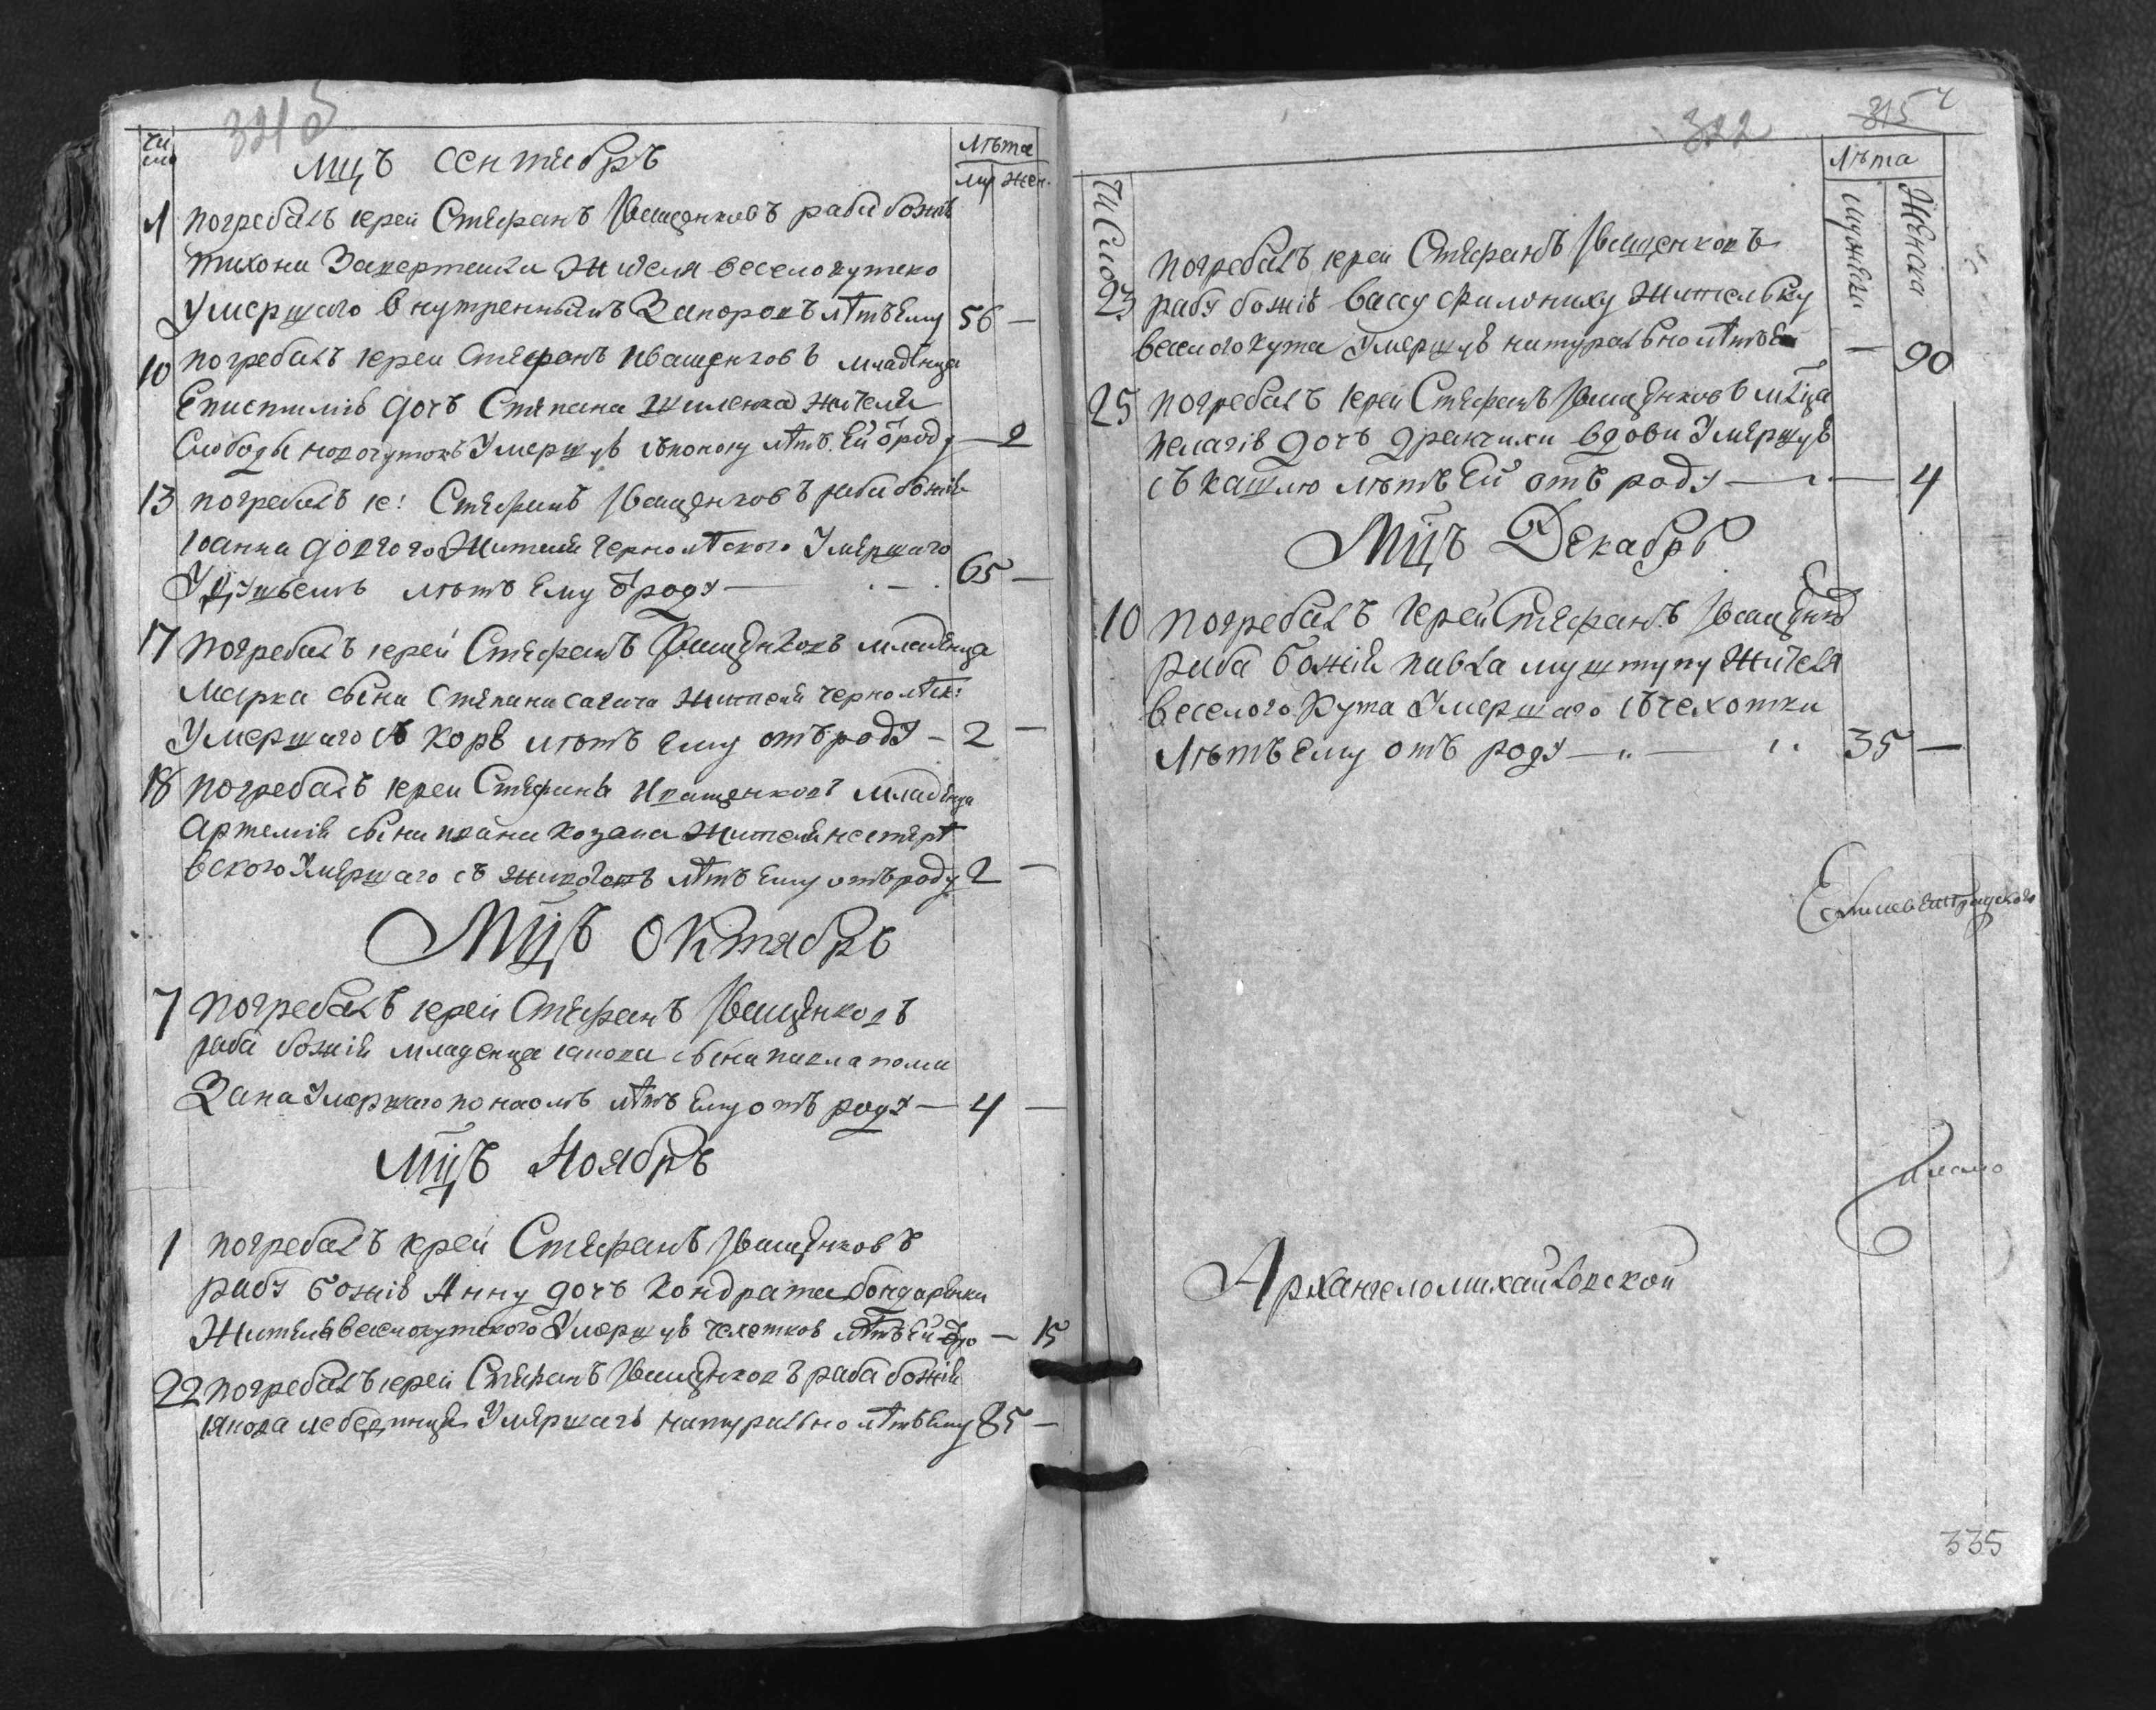 321 б
Число
Лѣта
Муж Жен.
Мцъ Сентябръ
1 погребалъ іерей Стефанъ Іващенковъ раба божія
Тихона Закертайла жителя веселокутско
умершаго внутреннымъ Запоромъ лѣтъ ему 56 —
10 погребалъ іерей Стефанъ Иващенковъ младенца
Епистимію дочь Степана жителя
Слободы умершую лѣтъ ей ѿ роду — 2
13 погребалъ іе: Стефанъ Іващенковъ раба божія
Іоанна Довгого жителя чернолѣского умершаго
удушьемъ лѣтъ ему ѿ роду — 65 —
17 погребалъ іерей Стефанъ Іващенковъ младенца
Марка сына Степана Сагача жителя чернолѣск:
умершаго съ коре лѣтъ ему отъ роду — 2 —
18 погребалъ іерей Стефанъ Иващенковъ младенца
Артемія сына Ивана Козака жителя нестер
вского умершаго съ лѣтъ ему отъ роду 2 —
Мцъ Октябръ
7 погребалъ іерей Стефанъ Іващенковъ
раба божія младенца Іакова сына Павла
умершаго поносомъ лѣтъ ему отъ роду — 4 —
Мцъ Ноябръ
1 погребалъ іерей Стефанъ Іващенковъ
рабу божію Анну дочь Кондрата Бондаренка
жителя веселокутского умершую чехоткою лѣтъ ей ѿ ро — 15
22 погребалъ іерей Стефанъ Іващенковъ раба божія
Іякова умершаго натурально лѣтъ ему 85 —
322
315
Число
Лѣта
мужеска
Женска
погребалъ іерей Стефанъ Іващенковъ
23 рабу божію Вассу Филониху жительку
веселого кута умершую натурально лѣтъ ей — 90
25 погребалъ іерей Стефанъ Іващенковъ млца
Пелагію дочь вдови умершую
съ кашлю лѣтъ ей отъ роду — 4
Мцъ Декабръ
10 погребалъ іерей Стефанъ Іващенков
раба божія Павла Муштупу жителя
веселого Кута умершаго съ чехотки
лѣтъ ему отъ роду — 35 —
Архангеломихайловской
335